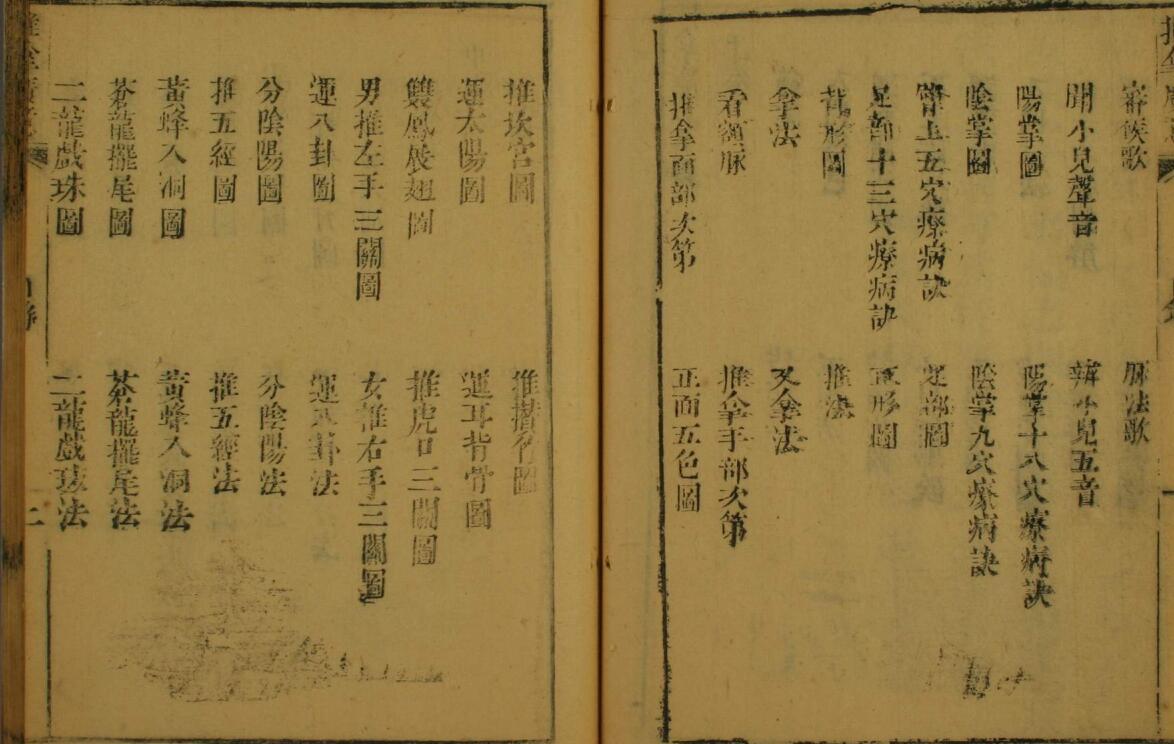 審候歌 脉法歌
聞小兒聲音 辨小兒五音
陽掌圖 陽掌十八穴療病訣
陰掌圖 陰掌九穴療病訣
臂上五穴療病訣 足部圖
足部十三穴療病訣 正形圖
背形圖 推法
拿法 又拿法
看額脉 推拿手部次第
推拿面部次第 正面五色圖
推坎宮圖 推攅竹圖
運太陽圖 運耳背骨圖
雙鳳展翅圖 推虎口三關圖
男推左手三關圖 女推右手三關圖
運八卦圖 運八卦法
分陰陽圖 分陰陽法
推五經圖 推五經法
黃蜂入洞圖 黃蜂入洞法
蒼龍擺尾圖 蒼龍擺尾法
二龍戲珠圖 二龍戲珠法